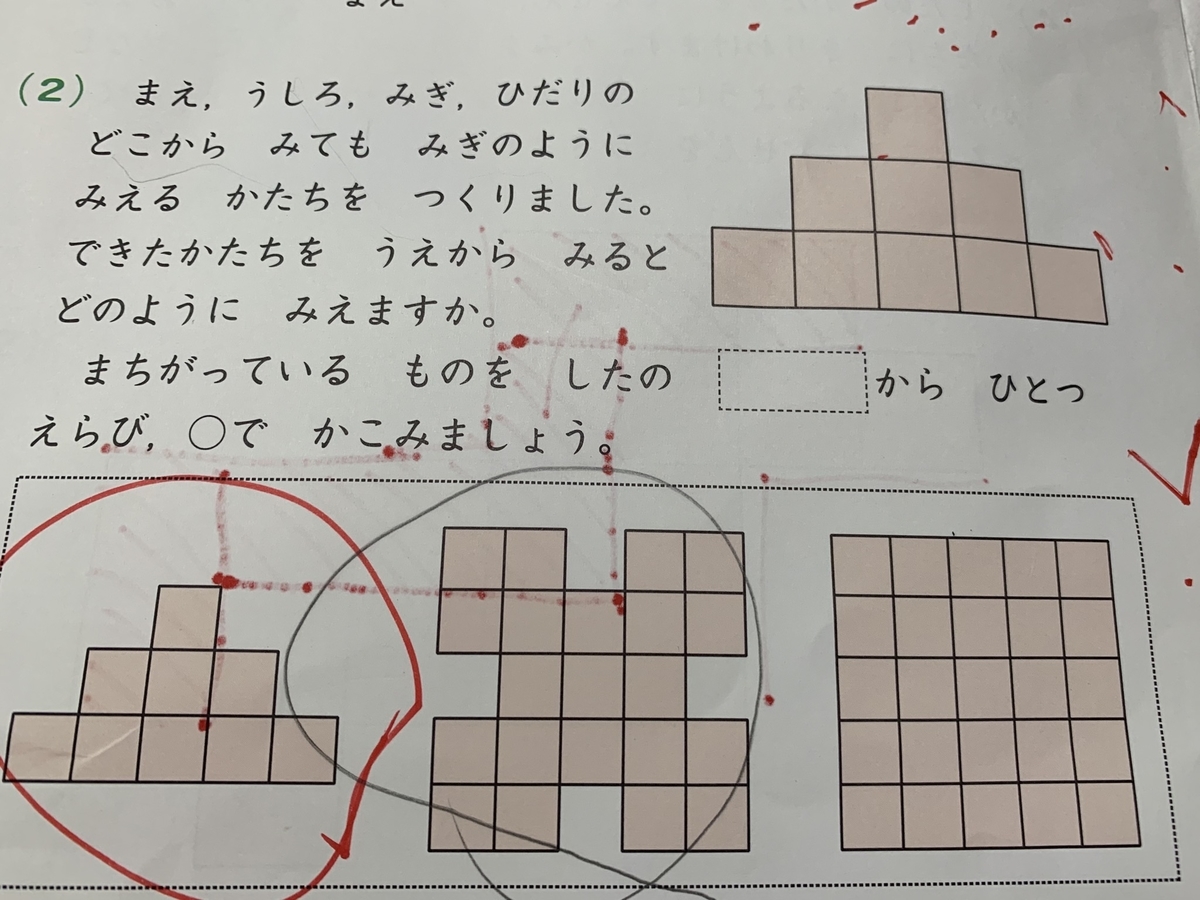 (2) まえ，うしろ，みぎ，ひだりの
どこから みても みぎのように
みえる かたちを つくりました。
できたかたちを うえから みると
どのように みえますか。
まちがっている ものを したの から ひとつ
えらび，○で かこみましょう。